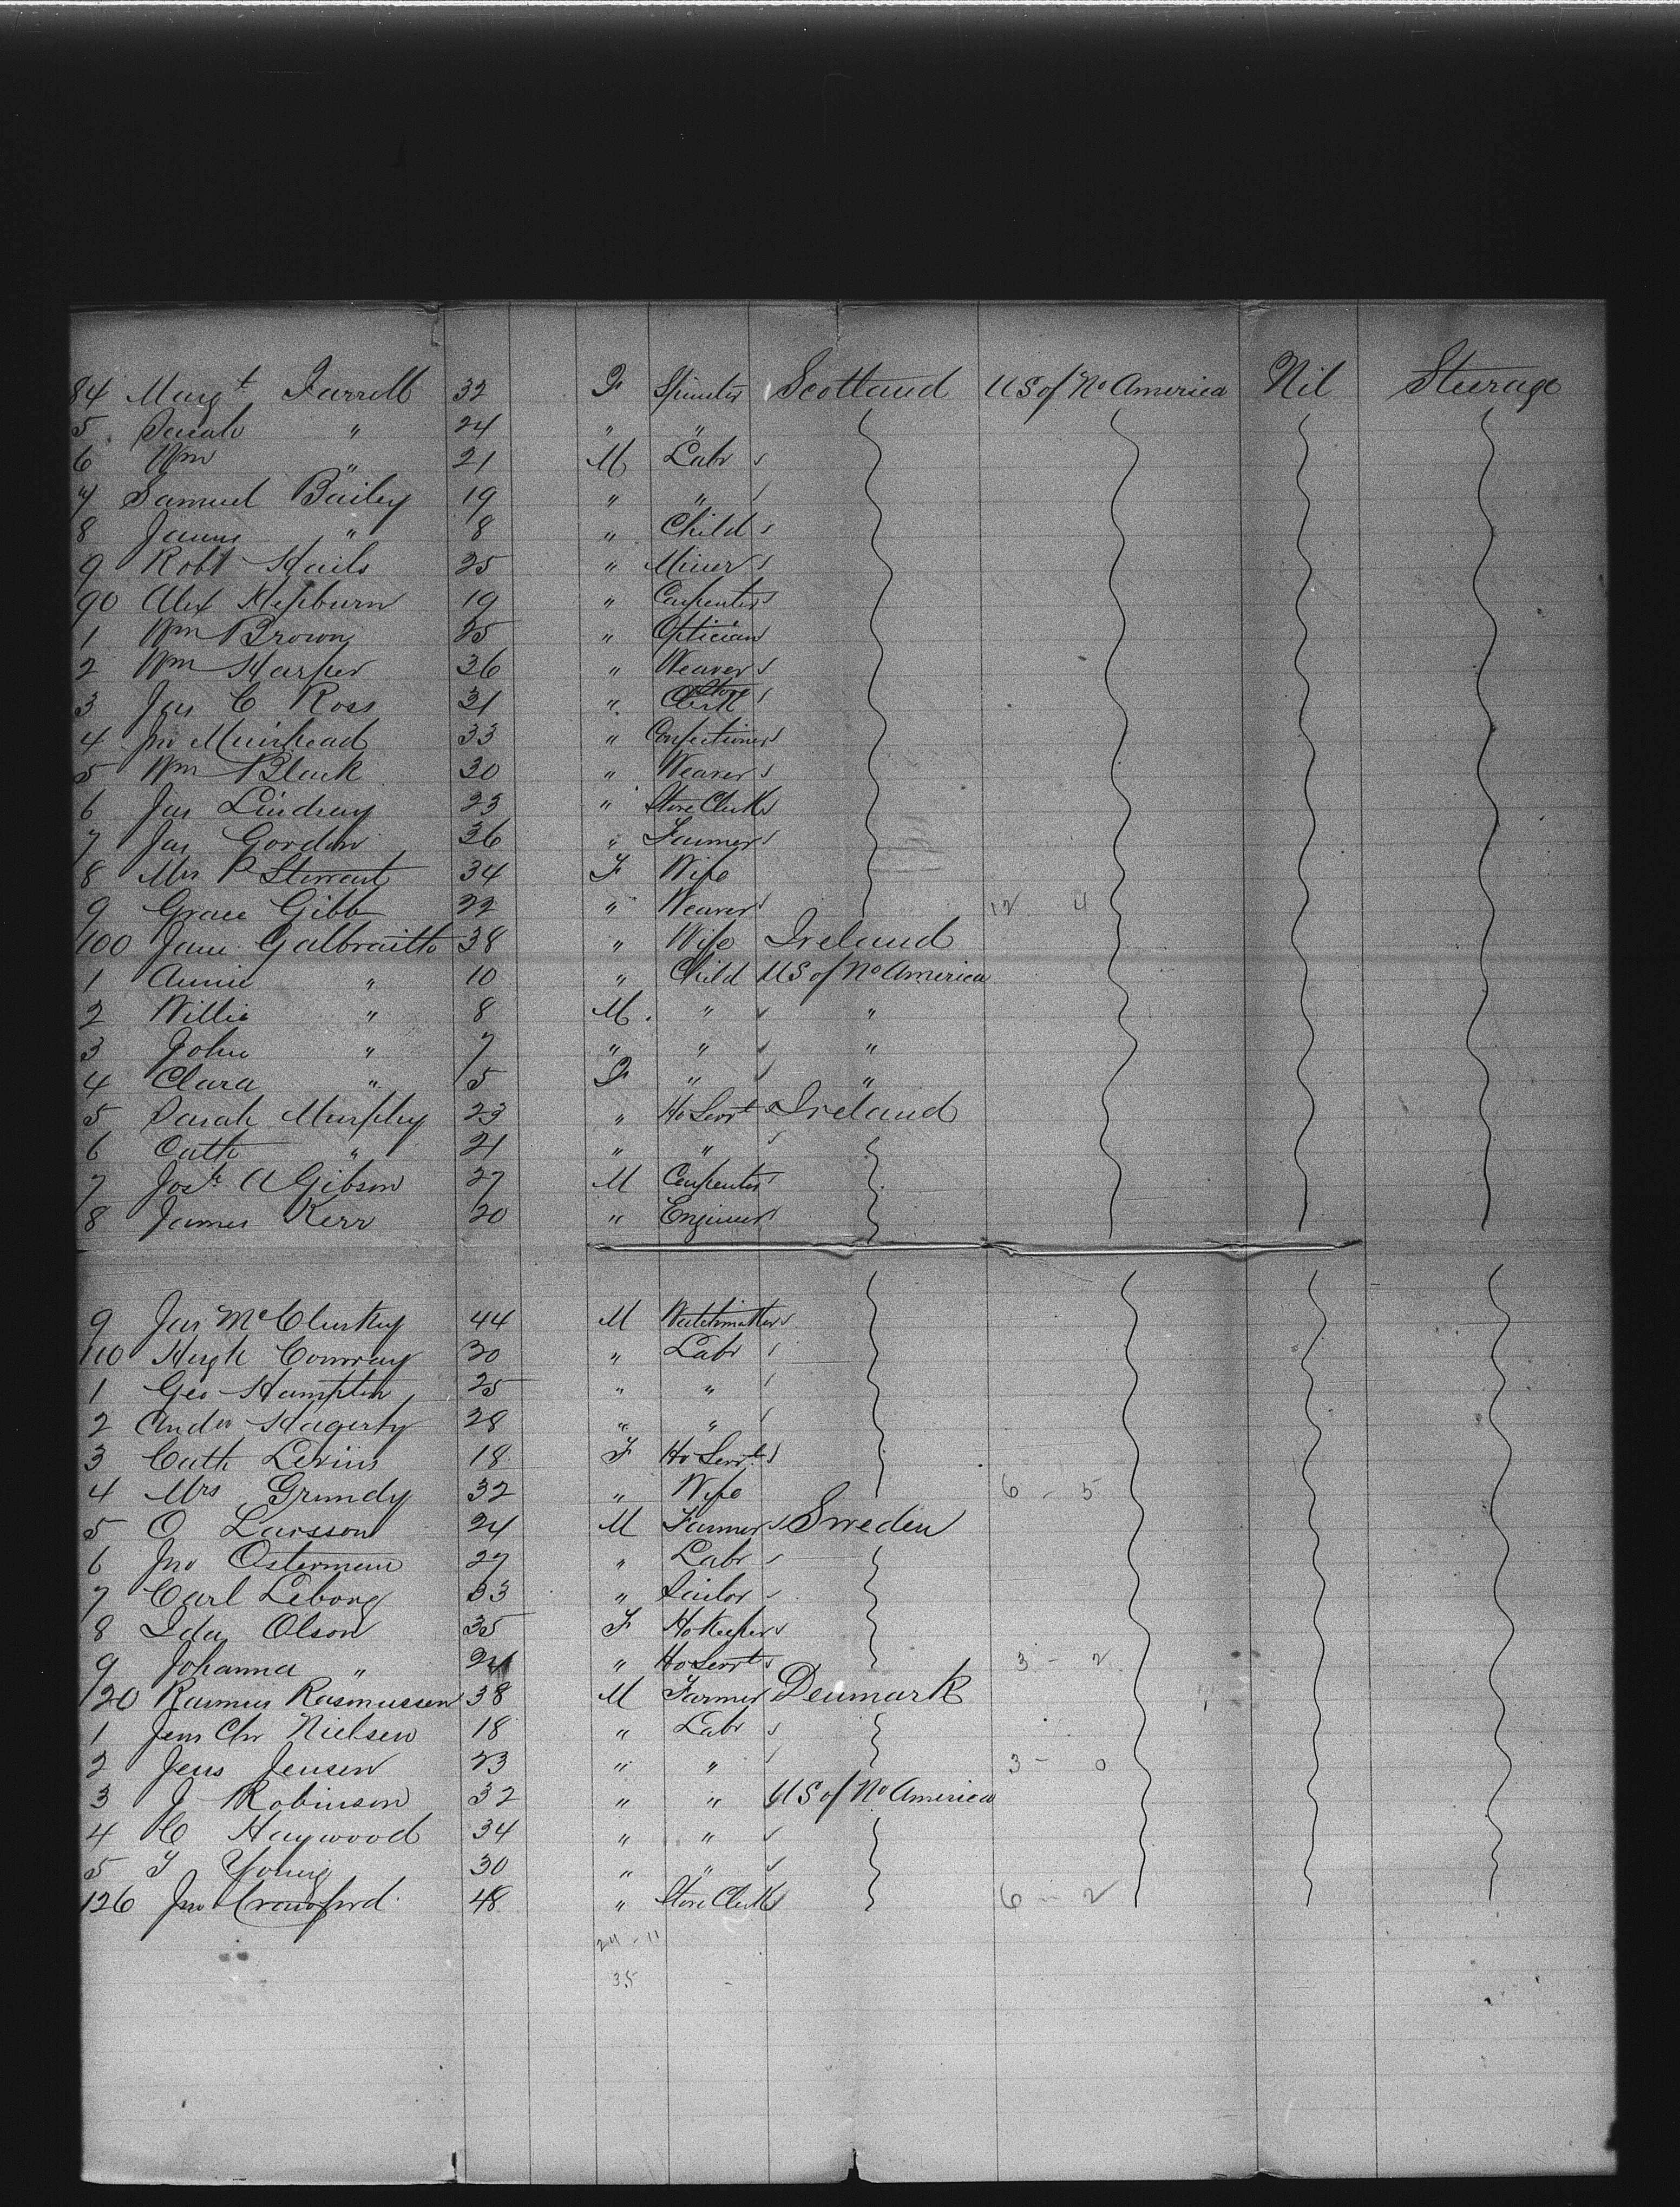 84 Margt Farrell 32 F Spinster Scotland US of No America Nil Steerage
5 Sarah " 24 " "
6 Wm " 21 M Labr
7 Samuel Bailey 19 " "
8 James " 8 " Child
9 Robt Hails 25 " Miner
90 Alex Hepburn 19 " Carpenter
1 Wm Brown 25 " Optician
2 Wm Harper 36 " Weaver
3 Jas C Ross 31 " Store Clerk
4 Jno Muirhead 33 " Confectioner
5 Wm Black 30 " Weaver
6 Jas Lindsay 23 " Store Clerk
7 Jas Gordon 36 " Farmer
8 Mrs P Stewart 34 F Wife
9 Grace Gibb 22 " Weaver 12 4
100 Jane Galbraith 38 " Wife Ireland
1 Annie " 10 " Child US of No America
2 Willie " 8 M " "
3 John " 7 " " "
4 Clara " 5 F " "
5 Sarah Murphy 23 " Ho Servt Ireland
6 Cath " 21 " "
7 Josh A Gibson 27 M Carpenter
8 James Kerr 20 " Engineer
9 Jas McCluskey 44 M Watchmaker
110 Hugh Conway 30 " Labr
1 Geo Hampton 25 " "
2 Andw Hagerty 28 " "
3 Cath Levins 18 F Ho Servt
4 Mrs Grundy 32 " Wife 6 - 5
5 O Larsson 24 M Farmer Sweden
6 Jno Osterman 27 " Labr
7 Carl Leborg 33 " Tailor
8 Ida Olson 35 F Ho Keeper
9 Johanna " 24 " Ho Servt 3 - 2
120 Rasmus Rasmussen 38 M Farmer Denmark
1 Jens Chr Nielsen 18 " Labr
2 Jens Jensen 23 " " 3 - 0
3 J Robinson 32 " " US of No America
4 C Haywood 34 " "
5 T Young 30 " "
126 Jno Crawford 48 " Store Clerk 6 - 2
24 - 11
35